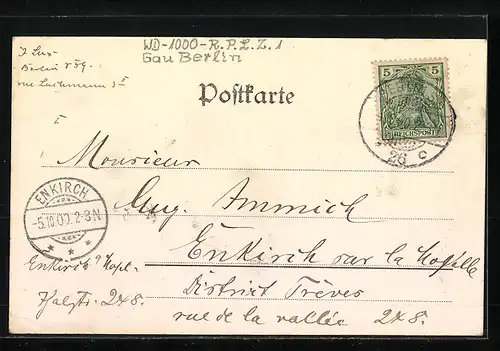 WD-1000-R.P.L.Z.1
Gau Berlin
J Lux
Berlin
rue
Postkarte
5 5
REICHSPOST
26 c
Monsieur
Aug. Immich
Enkirch sur la Moselle
District Trèves
rue de la vallée 248.
ENKIRCH
-5.10.00.2-3N
* * *
Enkirch a/Mosel.
Thalstr. 248.